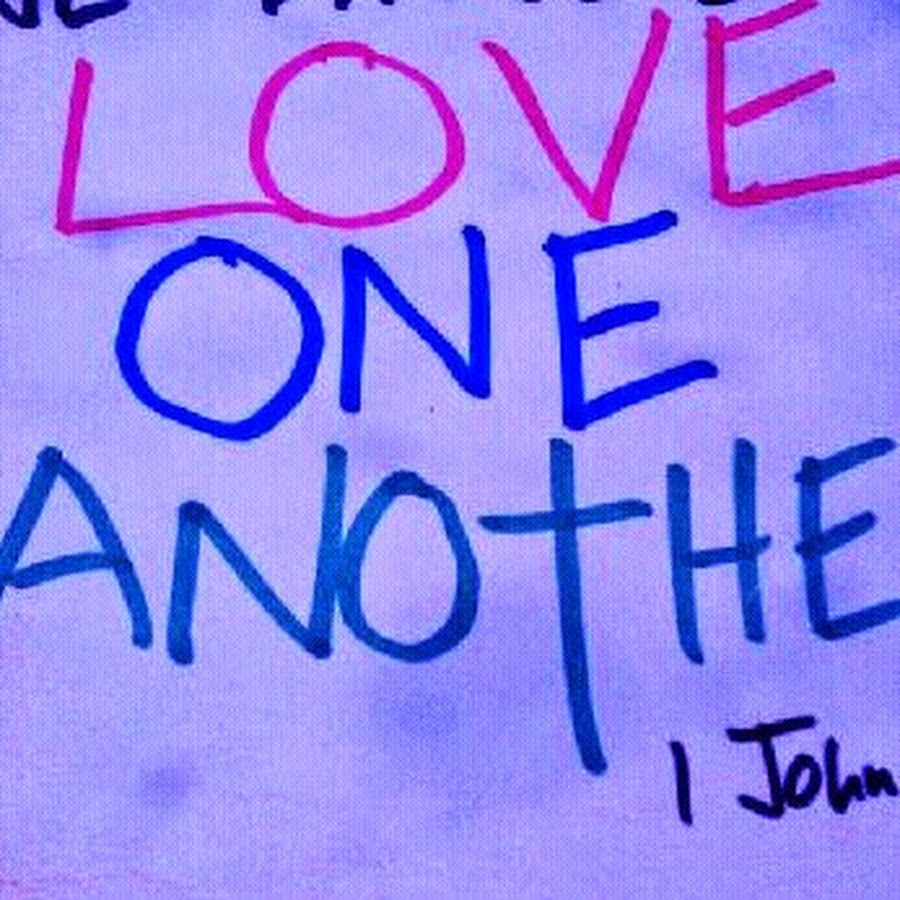 LOVE
ONE
ANOTHE
1 John